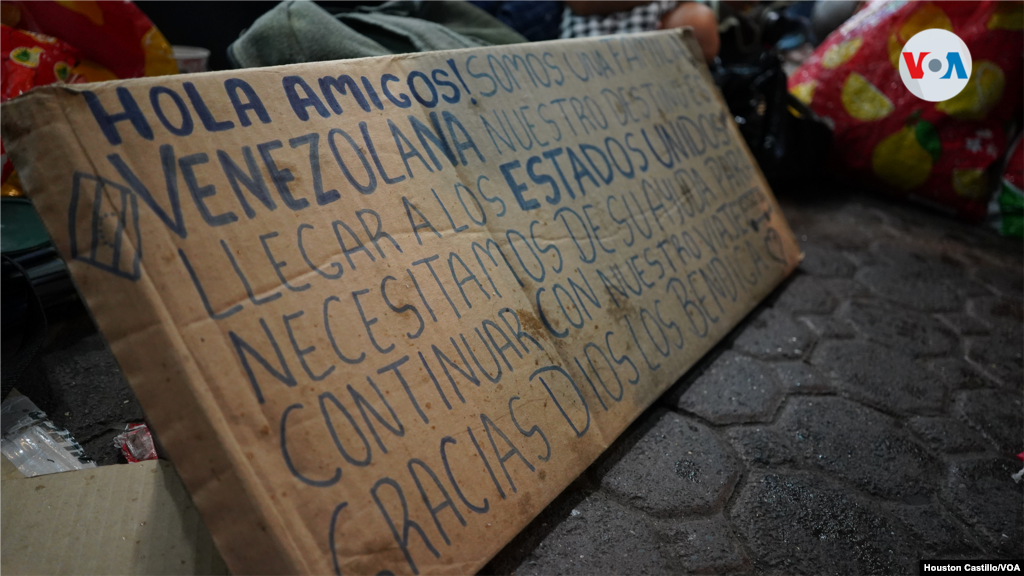 VOA
HOLA AMIGOS! SOMOS UNA FAMILIA
VENEZOLANA NUESTRO DESTINO ES
LLEGAR A LOS ESTADOS UNIDOS
NECESITAMOS DE SU AYUDA PARA
CONTINUAR CON NUESTRO VIAJE
GRACIAS DIOS LOS BENDIGA
Houston Castillo/VOA